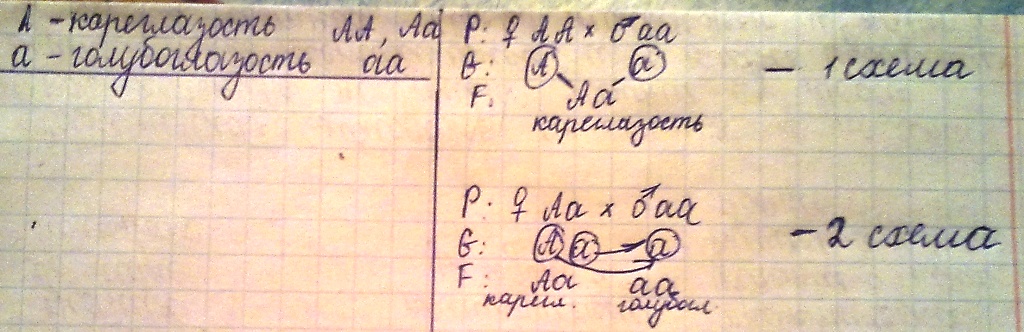 А - кареглазость АА, Аа
а - голубоглазость аа
P: ♀ АА × ♂ аа
G: А а
F: Аа
кареглазость
- 1 схема
P: ♀ Аа × ♂ аа
G: А а а
F: Аа аа
карегл. голубогл.
- 2 схема